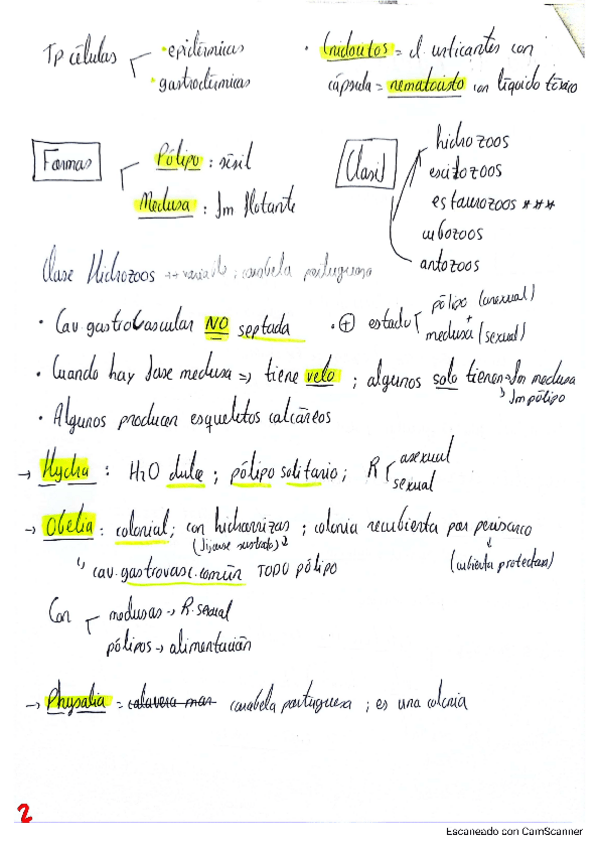 Tp células
• epidérmicas
• gastrodérmicas
• Cnidocitos = cl. urticantes con
cápsula = nematocisto con líquido tóxico
Formas
Pólipo : sésil
Medusa : fm flotante
Clasif
hidrozoos
escifozoos
estaurozoos ***
cubozoos
antozoos
Clase Hidrozoos ++ variab ; carabela portuguesa
• Cav. gastrovascular NO septada
• ⊕ estado
pólipo (asexual)
+
medusa (sexual)
• Cuando hay fase medusa => tiene velo ; algunos solo tienen fm medusa
↳ fm pólipo
• Algunos producen esqueletos calcáreos
→ Hydra : H2O dulce ; pólipo solitario ; R
asexual
sexual
→ Obelia : colonial ; con hidrorrizas ; colonia recubierta por perisarco
(fijarse sustrato)
(cubierta protectora)
↳ cav. gastrovasc. común TODO pólipo
Con
medusas → R. sexual
pólipos → alimentación
→ Physalia = calavera mar carabela portuguesa ; es una colonia
2
Escaneado con CamScanner